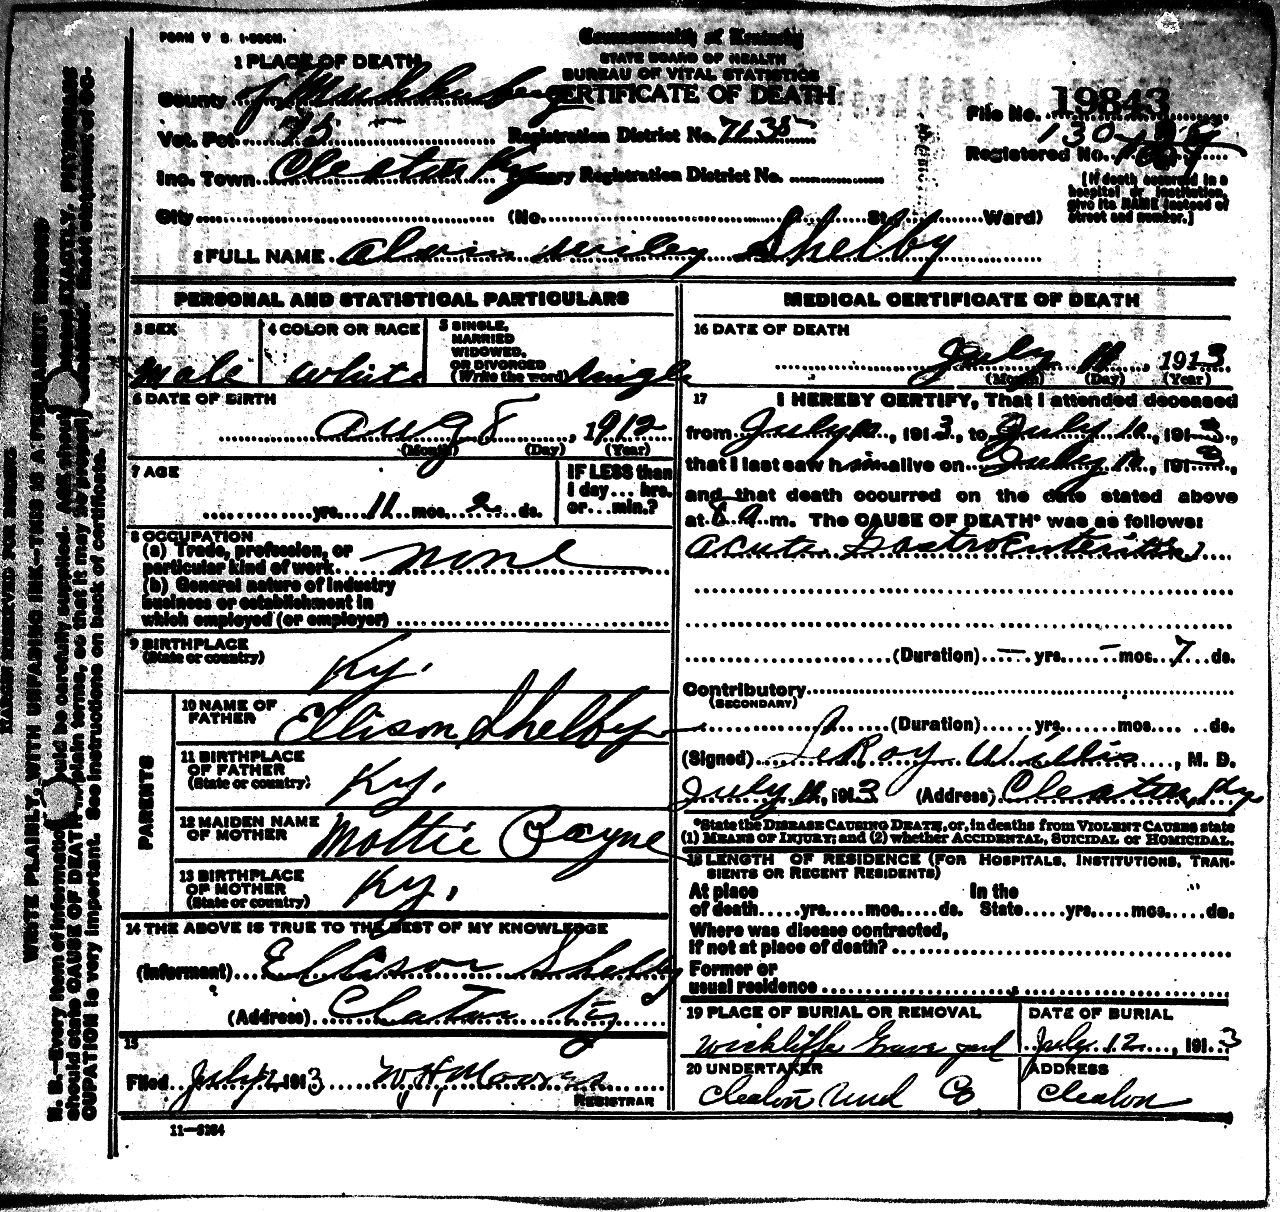 FORM V. S. 1-500M.
Commonwealth of Kentucky
STATE BOARD OF HEALTH
BUREAU OF VITAL STATISTICS
CERTIFICATE OF DEATH
1 PLACE OF DEATH
County of Muhlenberg
File No. 19843
Vot. Pct. 15 Registration District No. 7135
Registered No.
Inc. Town Cleaton Ky Primary Registration District No.
[If death occurred in a hospital or institution, give its NAME instead of street and number.]
City (No. St. Ward)
2 FULL NAME Alvin Shelby
PERSONAL AND STATISTICAL PARTICULARS
3 SEX Male
4 COLOR OR RACE White
5 SINGLE, MARRIED WIDOWED, OR DIVORCED (Write the word) Single
6 DATE OF BIRTH
Aug 8, 1912
(Month) (Day) (Year)
7 AGE
yrs. 11 mos. 2 ds.
IF LESS than 1 day... hrs. or...min.?
8 OCCUPATION
(a) Trade, profession, or particular kind of work none
(b) General nature of industry
business or establishment in
which employed (or employer)
9 BIRTHPLACE
(State or country) Ky.
PARENTS
10 NAME OF FATHER Ellison Shelby
11 BIRTHPLACE OF FATHER (State or country) Ky.
12 MAIDEN NAME OF MOTHER Mottie Payne
13 BIRTHPLACE OF MOTHER (State or country) Ky.
14 THE ABOVE IS TRUE TO THE BEST OF MY KNOWLEDGE
(Informant) Ellison Shelby
(Address) Cleaton Ky
15
Filed July 12 1913 W H
REGISTRAR
11—5184
MEDICAL CERTIFICATE OF DEATH
16 DATE OF DEATH
July 11, 1913
(Month) (Day) (Year)
17 I HEREBY CERTIFY, That I attended deceased
from July 10, 1913, to July 10, 1913,
that I last saw him alive on July 10, 1913,
and that death occurred on the date stated above
at 8 a m. The CAUSE OF DEATH* was as follows:
Acute Gastroenteritis
(Duration) — yrs. — mos. 7 ds.
Contributory
(SECONDARY)
(Duration) yrs. mos. ds.
(Signed) LeRoy Willis, M. D.
July 11, 1913 (Address) Cleaton, Ky
*State the DISEASE CAUSING DEATH, or, in deaths from VIOLENT CAUSES state
(1) MEANS OF INJURY; and (2) whether ACCIDENTAL, SUICIDAL or HOMICIDAL.
18 LENGTH OF RESIDENCE (FOR HOSPITALS, INSTITUTIONS, TRAN-
SIENTS OR RECENT RESIDENTS)
At place of death yrs. mos. ds. In the State yrs. mos. ds.
Where was disease contracted,
if not at place of death?
Former or
usual residence
19 PLACE OF BURIAL OR REMOVAL
Wickliffe Grave yard
DATE OF BURIAL
July 12, 1913
20 UNDERTAKER
Cleaton Co
ADDRESS
Cleaton
MARGIN RESERVED FOR BINDING
WRITE PLAINLY, WITH UNFADING INK—THIS IS A PERMANENT RECORD
N. B.—Every item of information should be carefully supplied. AGE should be stated EXACTLY. PHYSICIANS
should state CAUSE OF DEATH in plain terms, so that it may be properly classified. Exact statement of OC-
CUPATION is very important. See instructions on back of certificate.